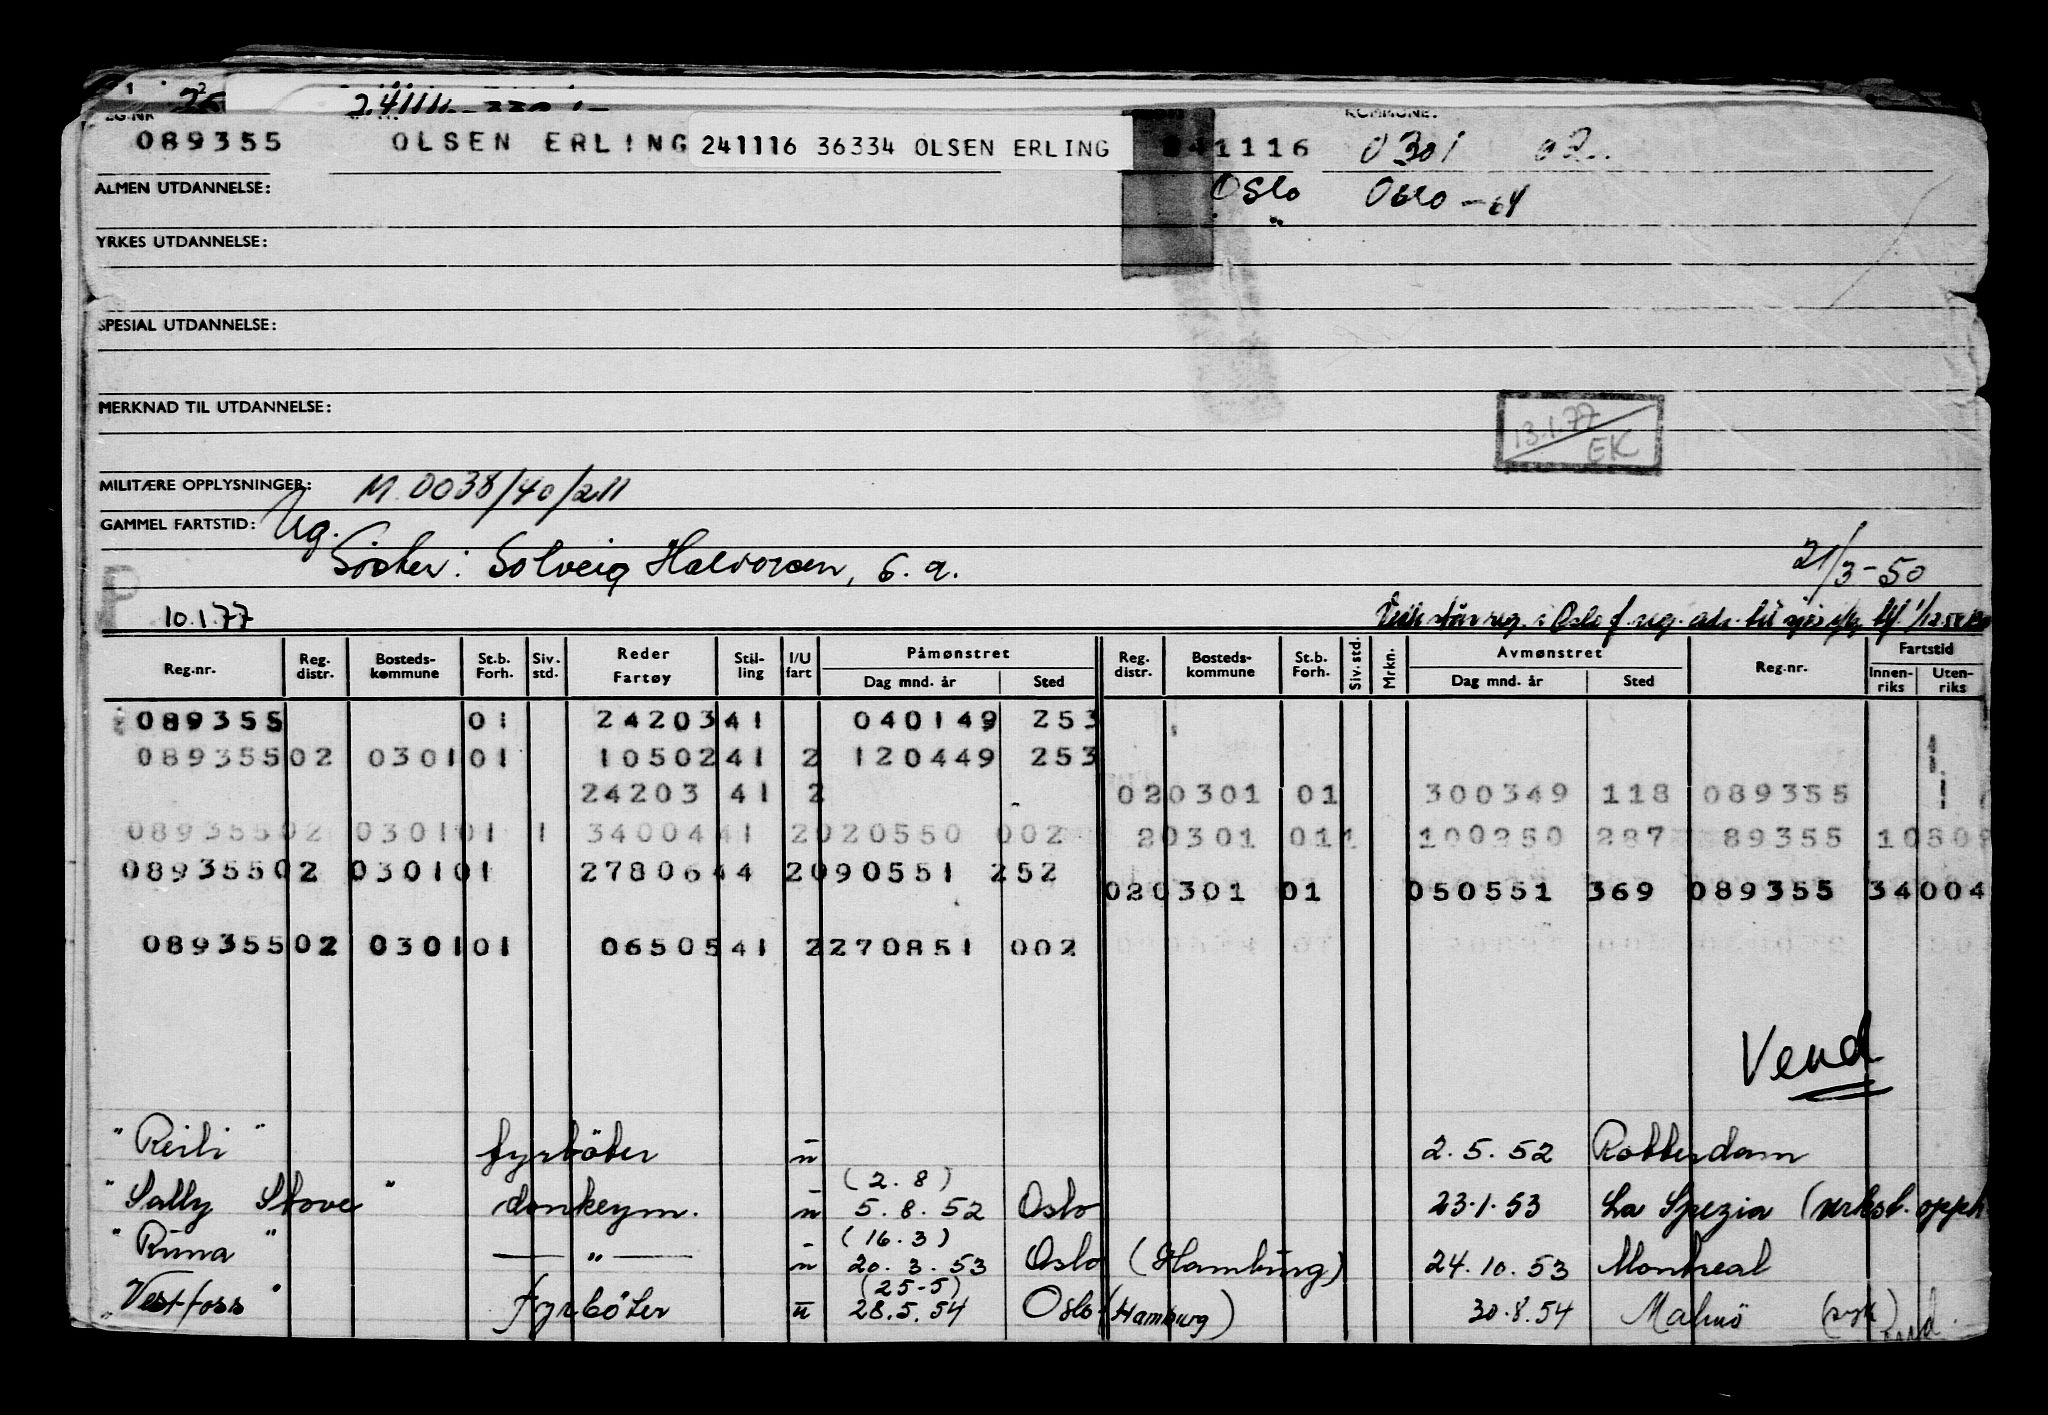 089355 OLSEN ERLING 241116 36334 OLSEN ERLING 1116 0301 02
KOMMUNE:
ALMEN UTDANNELSE: Oslo Oslo - 64
YRKES UTDANNELSE:
SPESIAL UTDANNELSE:
MERKNAD TIL UTDANNELSE:
13.1.77
EK
MILITÆRE OPPLYSNINGER: M. 0038/40/211
GAMMEL FARTSTID: Ug.
Söster: Solveig Halvorsen, s. a. 21/3-50
P
10.1.77
Reg.nr. Reg. distr. Bosteds-kommune St.b. Forh. Siv. std. Reder Fartøy Stil-ling I/U fart Påmønstret Dag mnd. år Sted Reg. distr. Bosteds-kommune St.b. Forh. Siv. std. Mrkn. Avmønstret Dag mnd. år Sted Reg.nr. Fartstid Innen-riks Uten-riks
089355 01 24203 41 040149 253
089355 02 0301 01 10502 41 2 120449 253
24203 41 2 02 0301 01 300349 118 089355
089355 02 0301 01 1 34004 41 2 020550 002 2 0301 01 1 100250 287 89355 10502
089355 02 0301 01 27806 44 2 090551 252
02 0301 01 050551 369 089355 34004
089355 02 0301 01 06505 41 2 270851 002
Vend
"Reili" fyrböter u 2.5.52 Rotterdam
(2.8)
"Sally Stove" donkeym. u 5.8.52 Oslo 23.1.53 La Spezia (
(16.3)
"Runa" — " — u 20.3.53 Oslo (Hamburg) 24.10.53 Montreal
(25-5)
"Vestfoss" fyrböter u 28.5.54 Oslo (Hamburg) 30.8.54 Malmö (syk)